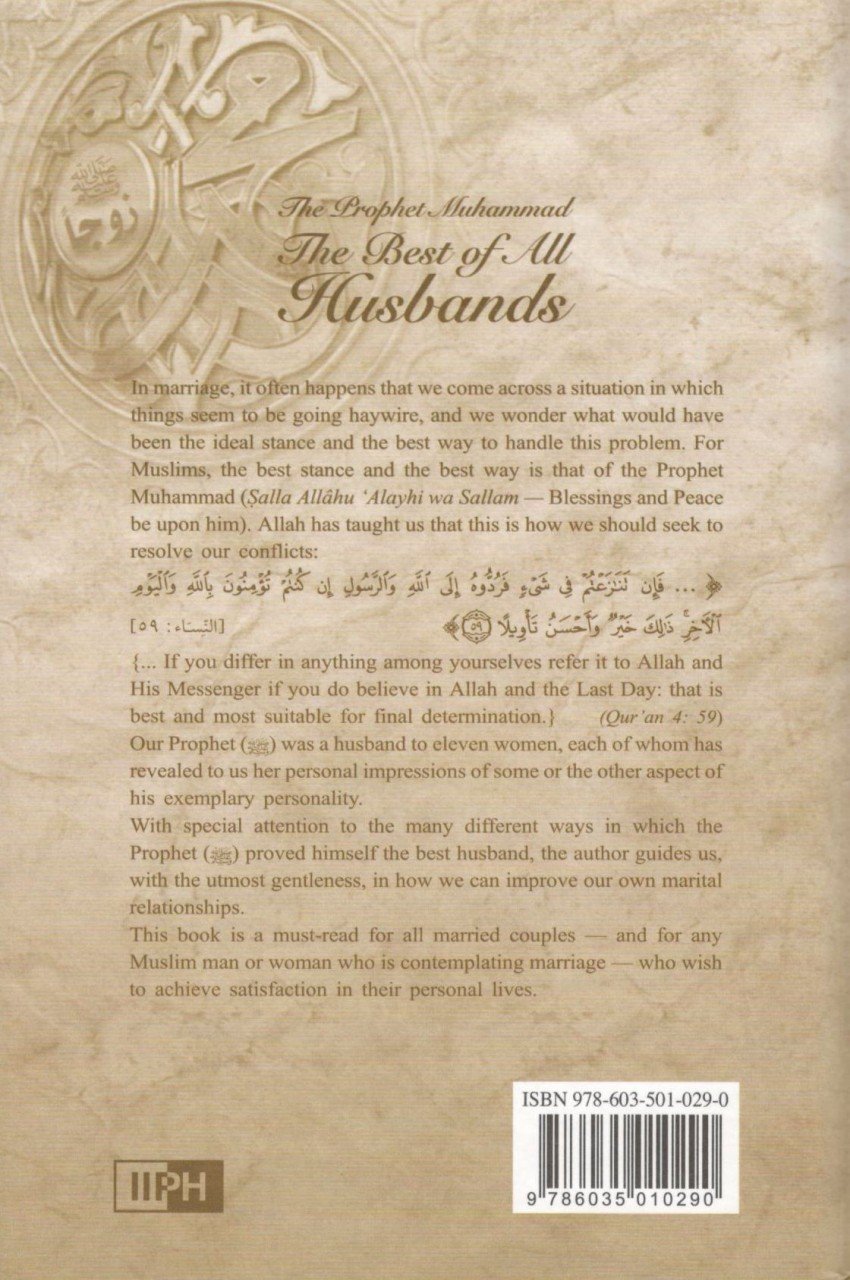 The Prophet Muhammad
The Best of All
Husbands
ﷺ
زوجا
In marriage, it often happens that we come across a situation in which
things seem to be going haywire, and we wonder what would have
been the ideal stance and the best way to handle this problem. For
Muslims, the best stance and the best way is that of the Prophet
Muhammad (Ṣalla Allâhu ‘Alayhi wa Sallam — Blessings and Peace
be upon him). Allah has taught us that this is how we should seek to
resolve our conflicts:
﴿ ... فَإِن تَنَٰزَعۡتُمۡ فِي شَيۡءٖ فَرُدُّوهُ إِلَى ٱللَّهِ وَٱلرَّسُولِ إِن كُنتُمۡ تُؤۡمِنُونَ بِٱللَّهِ وَٱلۡيَوۡمِ
ٱلۡأٓخِرِۚ ذَٰلِكَ خَيۡرٞ وَأَحۡسَنُ تَأۡوِيلًا ٥٩﴾ [النِّسَاء: ٥٩]
{... If you differ in anything among yourselves refer it to Allah and
His Messenger if you do believe in Allah and the Last Day: that is
best and most suitable for final determination.} (Qur’an 4: 59)
Our Prophet (ﷺ) was a husband to eleven women, each of whom has
revealed to us her personal impressions of some or the other aspect of
his exemplary personality.
With special attention to the many different ways in which the
Prophet (ﷺ) proved himself the best husband, the author guides us,
with the utmost gentleness, in how we can improve our own marital
relationships.
This book is a must-read for all married couples — and for any
Muslim man or woman who is contemplating marriage — who wish
to achieve satisfaction in their personal lives.
ISBN 978-603-501-029-0
9 786035 010290
IIPH